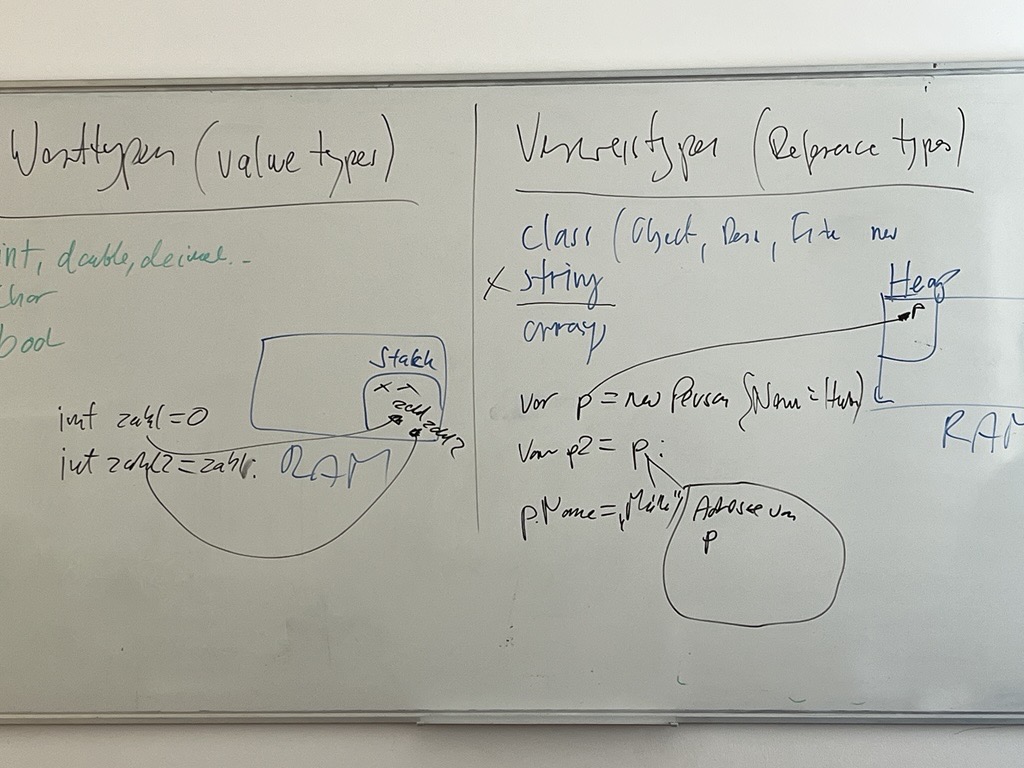 Werttypen (value types)
int, double, decimal...
char
bool
Stack
zahl
zahl2
int zahl = 0
int zahl2 = zahl.
RAM
Verweistypen (Reference types)
class (Object, new
x string
array
Heap
p
var p = new Person {Name =
var p2 = p;
p.Name = „
Adresse von
p
RAM